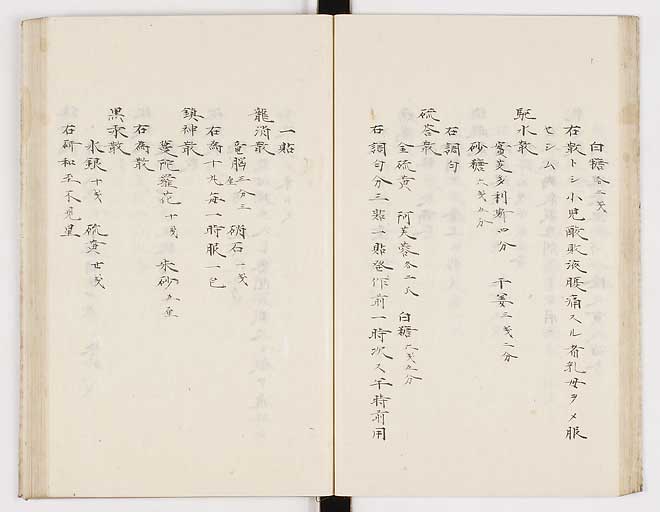 白糖各二戔
右散トシ小児酸敗液腰痛スル者乳母ヲメ服
セシム
駆水散
蜜芰多利斯四分 干姜三戔二分
砂糖六戔五分
右調匀
硫蓉散
金硫黄 阿芙蓉各二氏 白糖六戔五分
右調匀分三貼一貼發作前一時次又午時前用
一貼
龍消散
竜脳三分三 硝石一戔
右為十九毎一時服一包
鎮神散
曼陀羅花十戔 朱砂
右為散
黒汞散
水銀十戔 硫黄廿戔
右研和至不見星